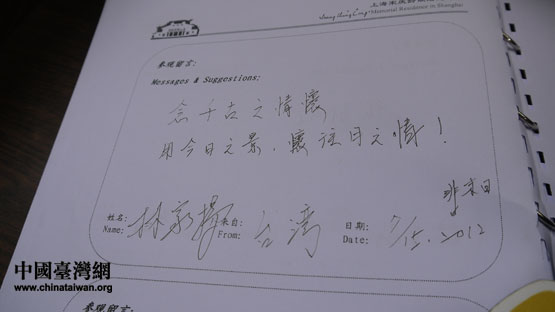 Soong Ching Ling Memorial Residence in Shanghai
参观留言:
Messages & Suggestions:
念千古之情懷
用今日之景，懷往日之情！
姓名: 林家揚 来自: 台湾 日期: 7/15. 2012
Name: From: Date:
中國臺灣網
www.chinataiwan.org
参观留言: